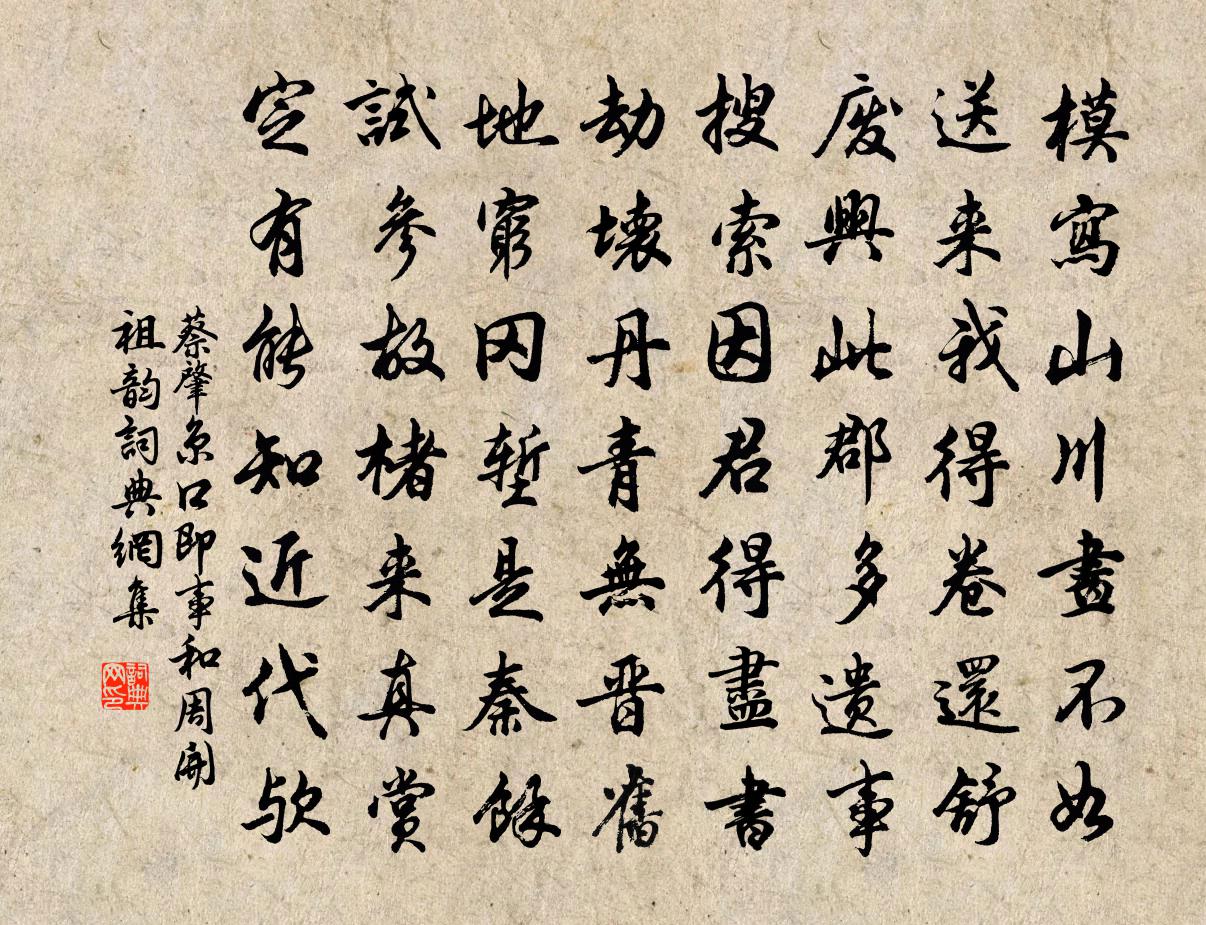 模寫山川畫不如
送来我得卷還舒
廢興此郡多遺事
搜索因君得盡書
劫壞丹青無晋舊
地窮冈塹是秦餘
試參故楮来真賞
定有能知近代欤
蔡肇京口即事和周開
祖韵詞典網集
詞典网印